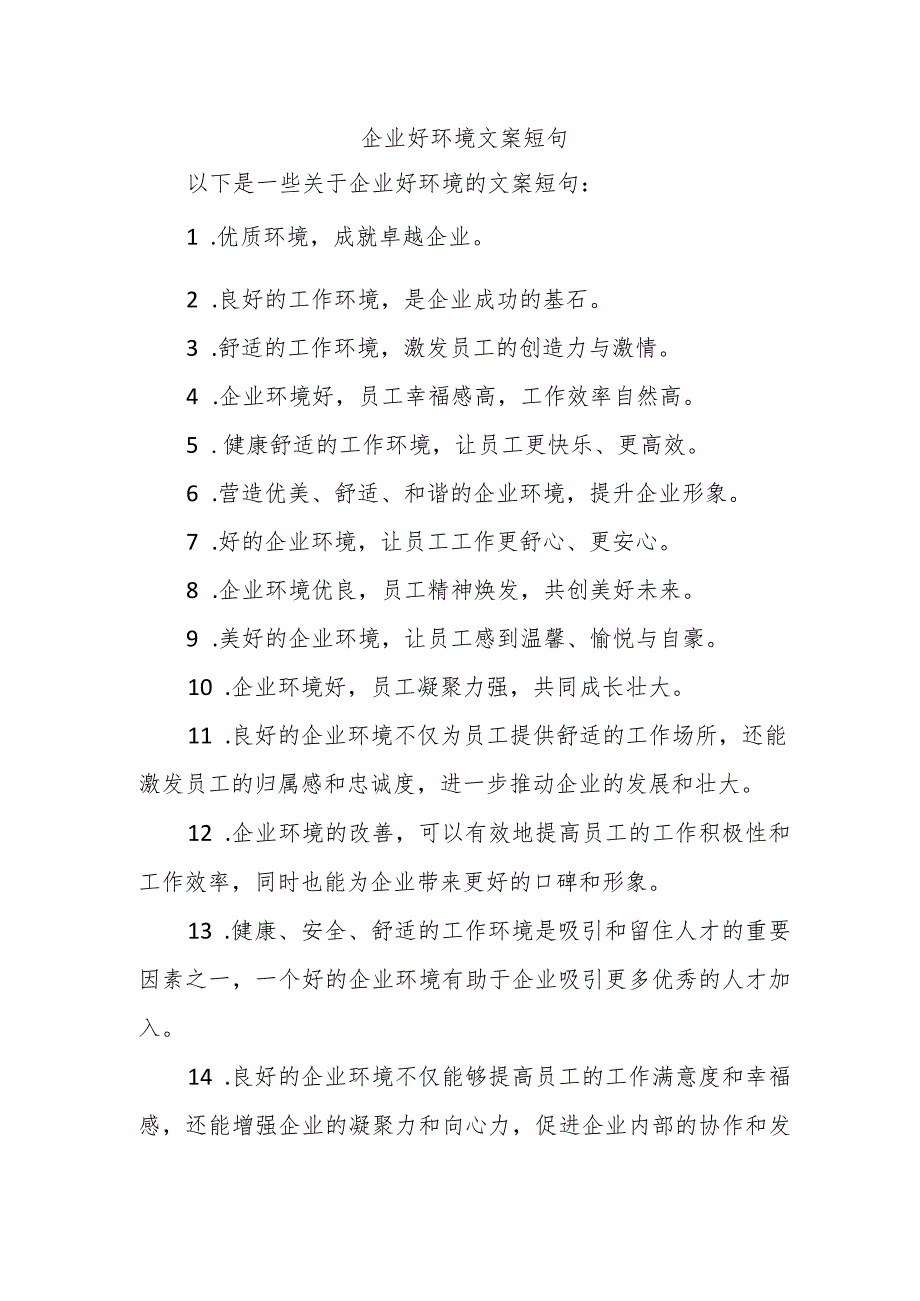 企业好环境文案短句
以下是一些关于企业好环境的文案短句：
1 .优质环境，成就卓越企业。
2 .良好的工作环境，是企业成功的基石。
3 .舒适的工作环境，激发员工的创造力与激情。
4 .企业环境好，员工幸福感高，工作效率自然高。
5 .健康舒适的工作环境，让员工更快乐、更高效。
6 .营造优美、舒适、和谐的企业环境，提升企业形象。
7 .好的企业环境，让员工工作更舒心、更安心。
8 .企业环境优良，员工精神焕发，共创美好未来。
9 .美好的企业环境，让员工感到温馨、愉悦与自豪。
10 .企业环境好，员工凝聚力强，共同成长壮大。
11 .良好的企业环境不仅为员工提供舒适的工作场所，还能
激发员工的归属感和忠诚度，进一步推动企业的发展和壮大。
12 .企业环境的改善，可以有效地提高员工的工作积极性和
工作效率，同时也能为企业带来更好的口碑和形象。
13 .健康、安全、舒适的工作环境是吸引和留住人才的重要
因素之一，一个好的企业环境有助于企业吸引更多优秀的人才加
入。
14 .良好的企业环境不仅能够提高员工的工作满意度和幸福
感，还能增强企业的凝聚力和向心力，促进企业内部的协作和发